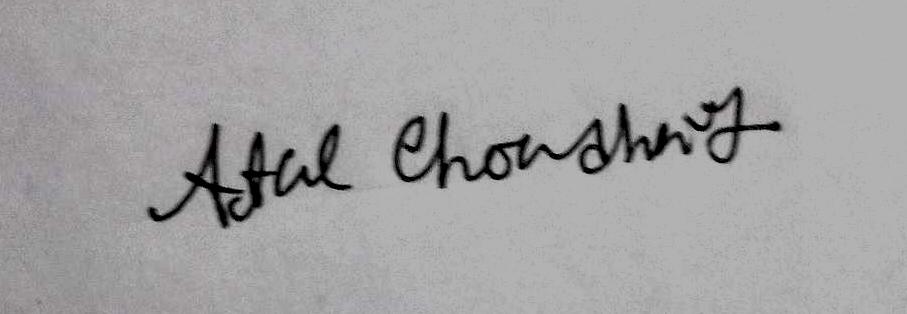 Afal Choudhury